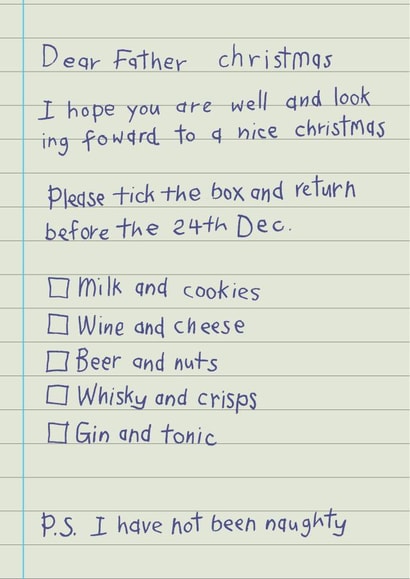 Dear Father christmas
I hope you are well and look
ing foward to a nice christmas
Please tick the box and return
before the 24th Dec.
☐ Milk and cookies
☐ Wine and cheese
☐ Beer and nuts
☐ Whisky and crisps
☐ Gin and tonic
P.S. I have not been naughty